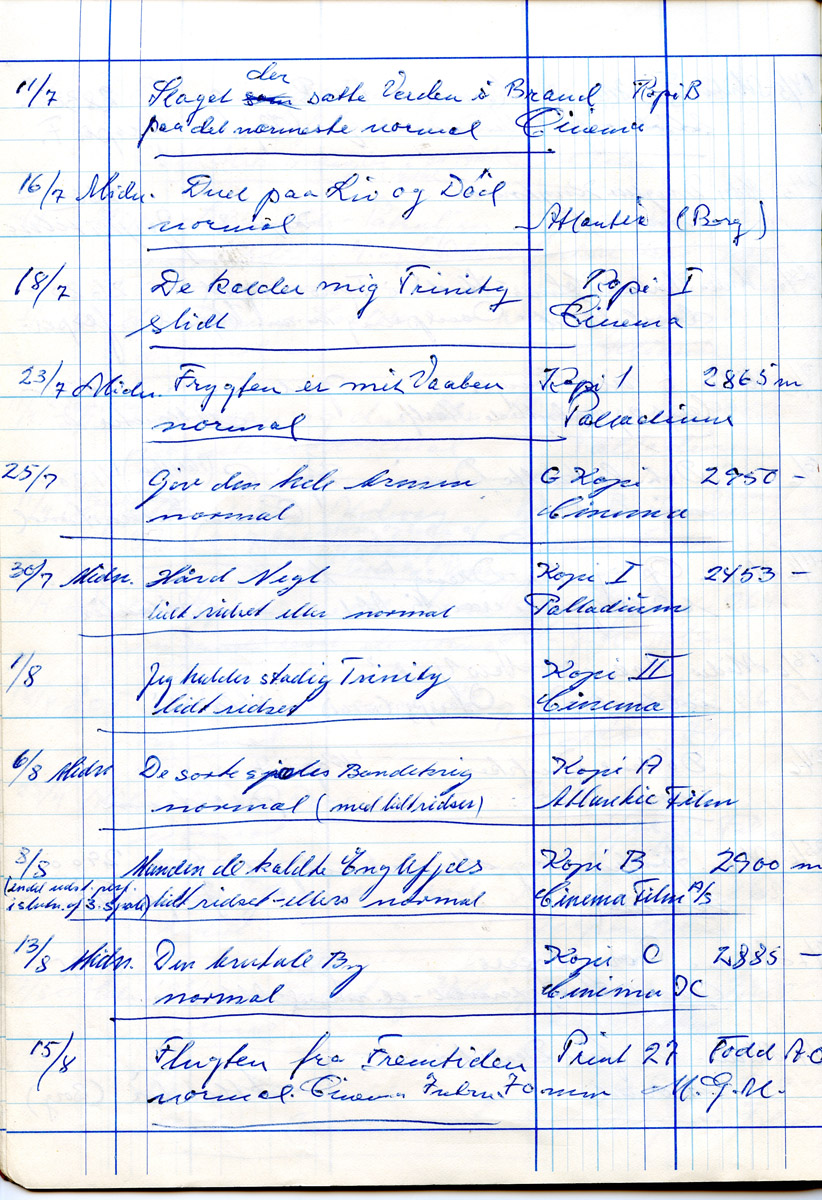 11/7 Slaget der satte Verden i Brand Kopi B
paa det nærmeste normal Cinema
16/7 Midn. Duel paa Liv og Död
normal Atlantic (Borg)
18/7 De kalder mig Trinity Kopi I
slidt Cinema
23/7 Midn. Frygten er mit Vaaben Kopi 1 2865 m
normal Palladium
25/7 Giv den hele Armen G Kopi 2950 -
normal Cinema
30/7 Midn. Hård Negl Kopi I 2453 -
lidt ridset eller normal Palladium
1/8 Jeg hedder stadig Trinity Kopi II
lidt ridset Cinema
6/8 Midn De sorte Bandekrig Kopi A
normal (med lidt ridser) Atlantic Film
8/8 Manden de kaldte Englefjæs Kopi B 2900 m
(endel udst. perf.
i slutn. af 3. spole) lidt ridset - ellers normal Cinema Film A/S
13/8 Midn. Den brutale By Kopi C 2885 -
normal Cinema DC
15/8 Flugten fra Fremtiden Print 27 Todd AO
normal. Cinema 70 mm M.G.M.